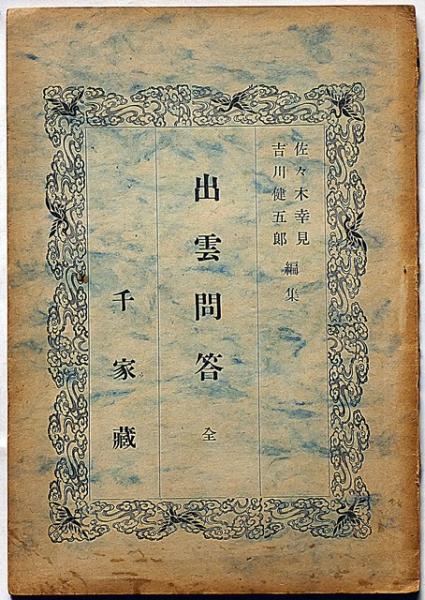 佐々木幸見
吉川健五郎
編集
出雲問答 全
千家藏